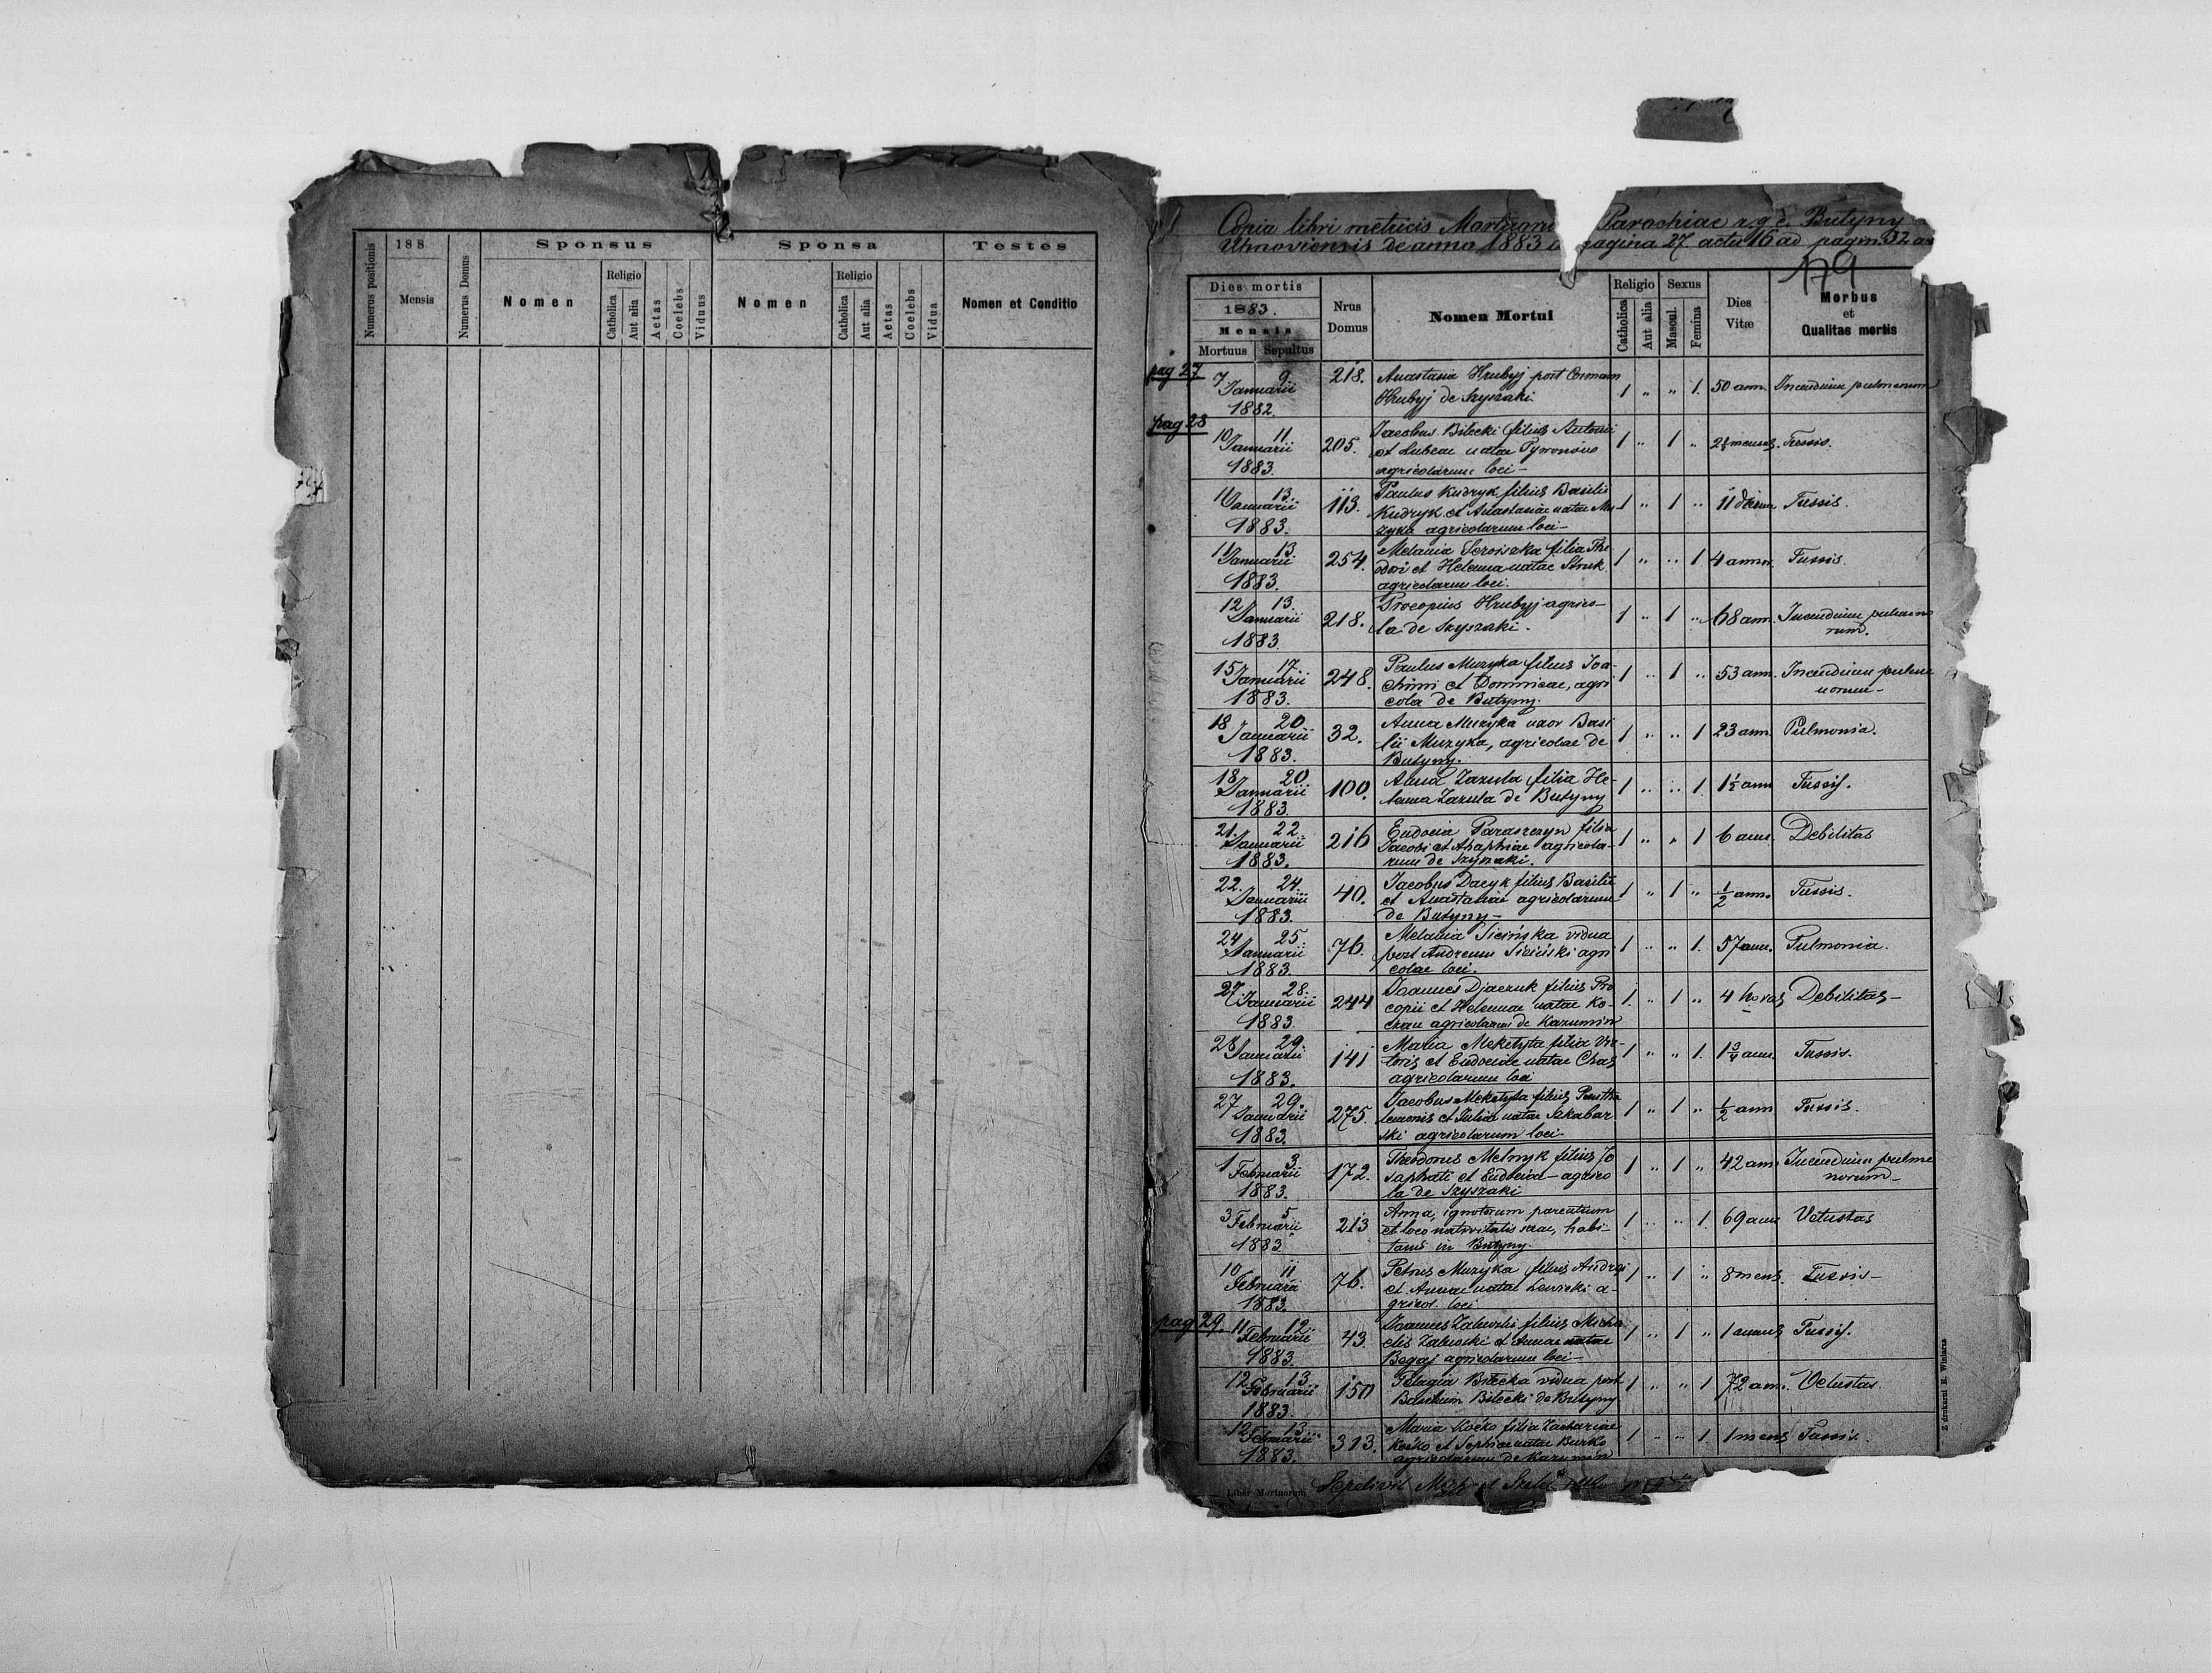 188
Numerus positionis
Mensis
Numerus Domus
Sponsus
Nomen
Religio
Catholica
Aut alia
Aetas
Coelebs
Viduus
Sponsa
Nomen
Religio
Catholica
Aut alia
Aetas
Coelebs
Vidua
Testes
Nomen et Conditio
Copia libri metricis Parochiae r. g. c. Butyny
Uhnoviensis de anno 1883 pagina 27 actu 16 ad pagin 32
179
Dies mortis
1883.
Mensis
Mortuus Sepultus
Nrus Domus
Nomen Mortui
Religio
Catholica
Aut alia
Sexus
Mascul.
Femina
Dies Vitæ
Morbus
et
Qualitas mortis
pag 27
7 9. 218. Anastasia Hrubyj post Cosmam 1 " " 1. 50 ann. Incendium pulmonum
Januarii Hrubyj de Szyszaki.
1882.
pag 28
10 11 205. Jacobus Bilecki filius Antonii 1 " 1 " 2½ menses. Tussis.
Januarii et natae
1883. agricolarum loci –
11 13. 113. Paulus Kudryk filius Basilii 1 " 1 " 11 dierum Tussis.
Januarii Kudryk et Anastasiae natae Mu-
1883. zyka agricolarum loci –
11 13 254. Melania filia The- 1 " " 1 4 annor. Tussis.
Januarii dori et Helenna natae
1883. agricolarum loci.
12 13. 218. Procopius Hrubyj agrico- 1 " 1 " 68 ann. Incendium pulmo
Januarii la de Szyszaki. norum.
1883
15 17 248. Paulus Muzyka filius Joa- 1 " 1 " 53 ann. Incendium pulmo
Januarii chimi et Domnicae, agri
1883. cola de Butyny.
18 20. 32. Anna Muzyka uxor Basi 1 " " 1 23 ann. Pulmonia.
Januarii lii Muzyka, agricolae de
1883. Butyny.
18 20 100. Anna Zazula filia He- 1 " " 1. 1½ ann Tussis.
Januarii lenna Zazula de Butyny
1883.
21. 22. 216 Eudocia Paraszczyn filia 1 " " 1 6 ann. Debilitas
Januarii Jacobi et Ahaphiae agricola-
1883. rum de Szyszaki.
22. 24. 40. Jacobus Dacyk filius Basilii 1 " 1 " ½ anno Tussis.
Januarii et Anastasiae agricolarum
1883. de Butyny –
24 25. 76. Melania Sicińska vidua 1 " " 1. 57 ann. Pulmonia.
Januarii post Andreum Siciński agri
1883. colae loci.
27. 28. 244 Joannes Djaczuk filius Pro 1. " 1 " 4 horas Debilitas –
Januarii copii et Helennae natae Ko-
1883. agricolarum de Kazumin
28 29. 141 Maria Meketyta filia Vic- 1 " " 1. 1¾ ann. Tussis.
Januarii toris et Eudociae natae
1883. agricolarum loci
27 29. 275. Jacobus Meketyta filius Pantha 1 " 1 " ½ ann Tussis.
Januarii lemonis et Julia natae
1883. ski agricolarum loci.
1 3 172. Theodorus Melnyk filius Jo 1 " 1 " 42 ann. Incendium pulmo
Februarii saphati et Eudociae – agrico norum –
1883. la de Szyszaki
3 5 213 Anna, ignotorum parentum 1 " " 1. 69 ann Vetustas
Februarii et loco nativitatis suae, habi-
1883 tans in Butyny.
10 11 76. Petrus Muzyka filius Andrei 1 " 1 " 8 mens. Tussis –
Februarii et Annae natae Lewicki a-
1883. gricol. loci
pag 29.
11 12 43. Joannes Zalewski filius Micha 1 " 1 " 1 annus Tussis.
Februarii elis Zalewski et Annae natae
1883. Begaj agricolarum loci –
12 13 150 Pelagia Bilecka vidua post 1 " " 1 72 ann. Vetustas.
Februarii Basilium Bilecki de Butyny
1883.
12 13 313. Maria Koćko filia Zachariae 1 " " 1. 1 mens Tussis.
Februarii Koćko et Sophiae natae Burko
1883. agricolarum de Kazumin
Liber Mortuorum Sepelivit
Z drukarni E. Winiarza